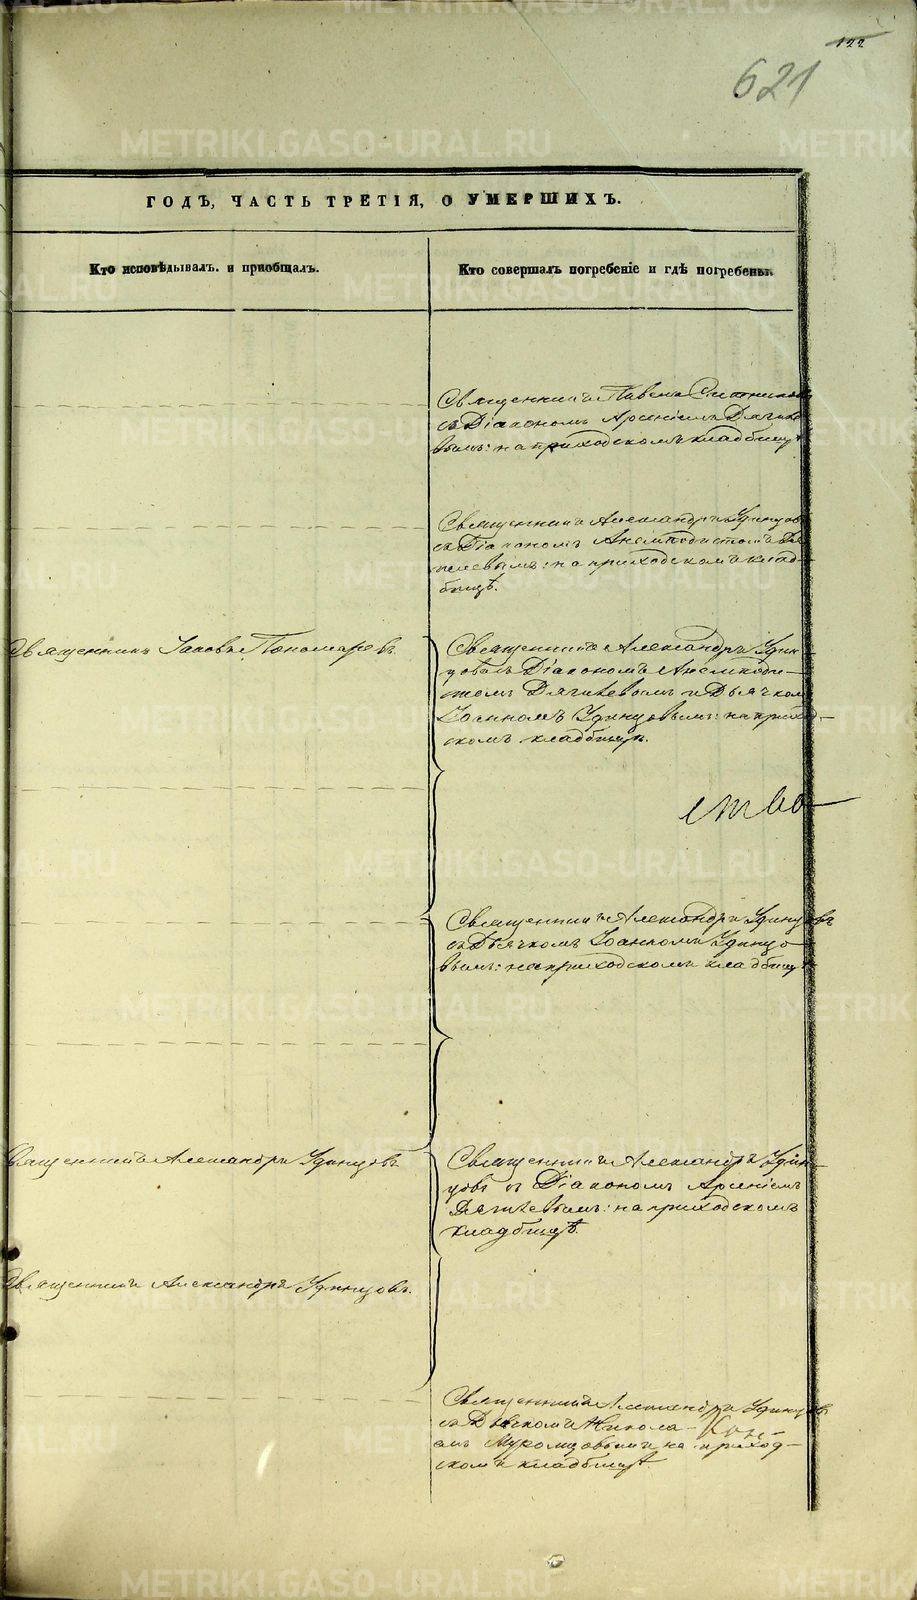 122
621
ГОДЪ, ЧАСТЬ ТРЕТІЯ, О УМЕРШИХЪ.
Кто исповѣдывалъ и приобщалъ.
Кто совершалъ погребеніе и гдѣ погребены.
Священникъ Павелъ
съ Діакономъ Арсеніемъ Дягиле
вымъ: на приходскомъ кладбищѣ
Священникъ Александръ Удинцовъ
съ Діакономъ Анемподистомъ Дя
гилевымъ: на приходскомъ клад-
бищѣ.
Священникъ Іаковъ Пономаревъ.
Священникъ Александръ Удин-
цовъ съ Діакономъ Анемподи-
стомъ Дягилевымъ и Дьячком
Іоанномъ Удинцовымъ: на приход-
скомъ кладбищѣ.
ство
Священникъ Александръ Удинцовъ
съ Дьячкомъ Іоанномъ Удинцо-
вымъ: на приходскомъ кладбищѣ
Священникъ Александръ Удинцовъ
Священникъ Александръ Удин-
цовъ съ Діакономъ Арсеніемъ
Дягилевымъ: на приходскомъ
кладбищѣ.
Священникъ Александръ Удинцовъ.
Священникъ Александръ Удинцовъ
съ Дьячкомъ Никола-
емъ на приход-
скомъ кладбищѣ.
METRIKI.GASO-URAL.RU